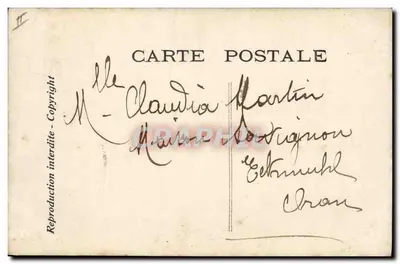 II
CARTE POSTALE
Reproduction interdite - Copyright
Mlle Claudia Martin
Maison
Eckmuhl
Oran